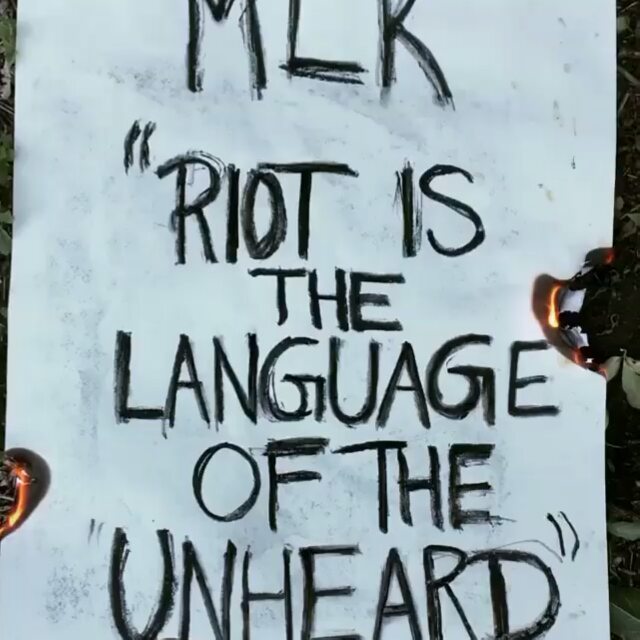 MLK
"RIOT IS
THE
LANGUAGE
OF THE
"UNHEARD"